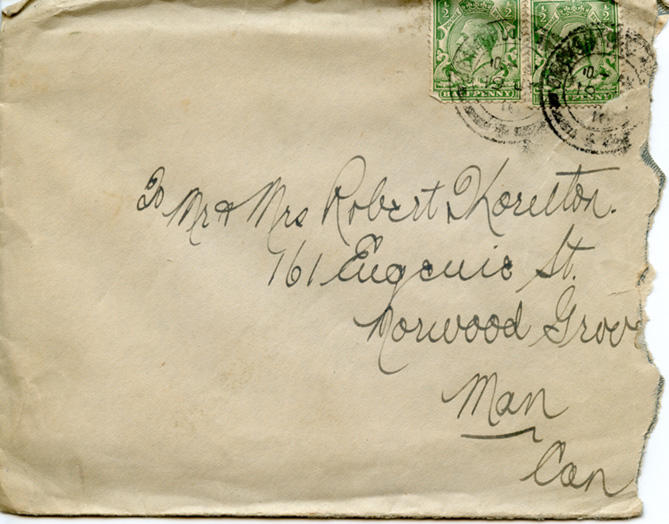 HALFPENNY
To Mr & Mrs Robert
161 Eugenie St.
Norwood Grov
Man
Can